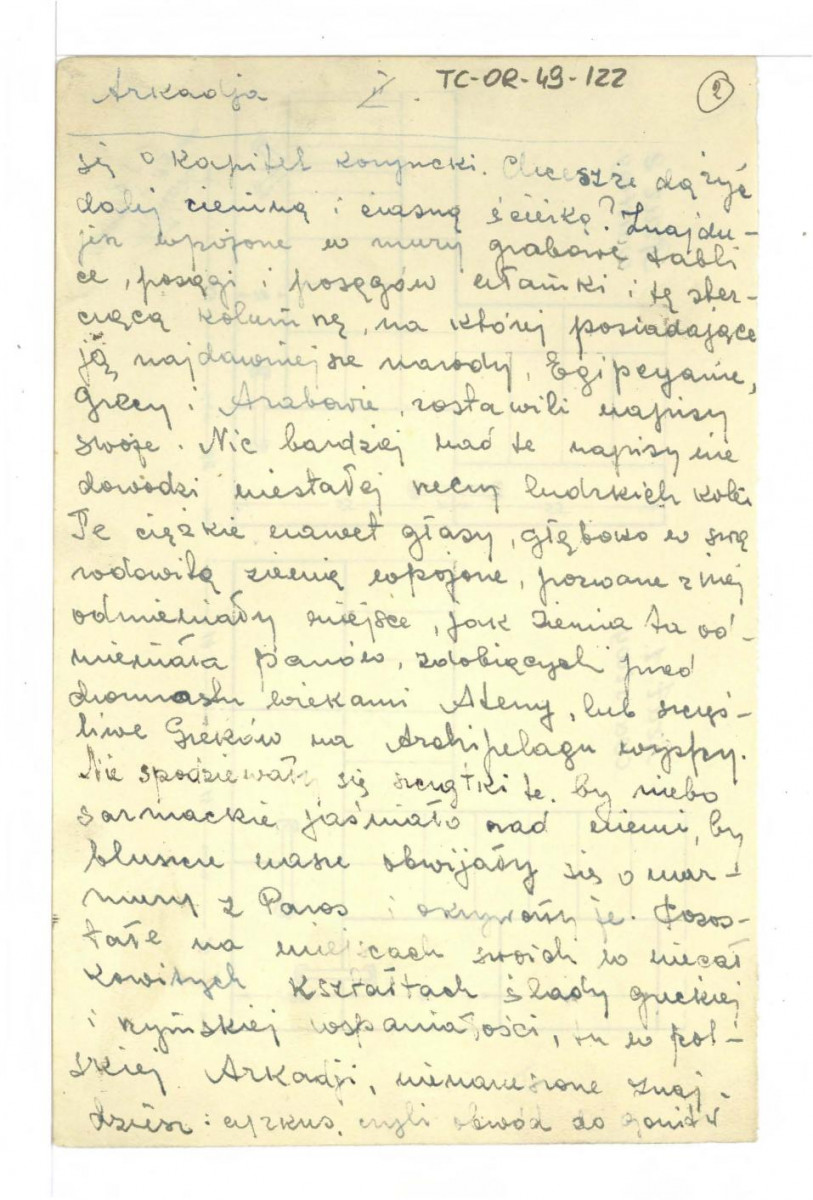 Arkadja II. TC-OR-49-122 2
się o kapitel koryncki. Chceszże dążyć
dalej ciemną i ciasną ścieżką? Znajdu-
jesz wpojone w mury grabowe tabli
ce, posągi i posągów ułamki i tę ster-
czącą kolumnę, na której posiadające
ją najdawniejsze narody, Egipcyanie,
Grecy i Arabowie, zostawili napisy
swoje. Nic bardziej nad te napisy nie
dowodzi niestałej rzeczy ludzkich kolei
Te ciężkie nawet głazy, głęboko w swą
rodowitą ziemię wpojone, porwane z niej
odmieniały miejsce, jak ziemia ta od-
mieniała panów, zdobiących przed
dwunastu wiekami Ateny, lub szczęś-
liwe Greków na Archipelagu wyspy.
Nie spodziewały się szczątki te, by niebo
sarmackie jaśniało nad niemi, by
bluszcze nasze obwijały się o mar-
mury z Paros i okrywały je. Pozos-
tałe na miejscach swoich w niecał
kowitych kształtach ślady greckiej
i rzymskiej wspaniałości, tu w pol-
skiej Arkadji, nienaruszone znaj-
dziesz: cyrkus, czyli obwód do gonitw